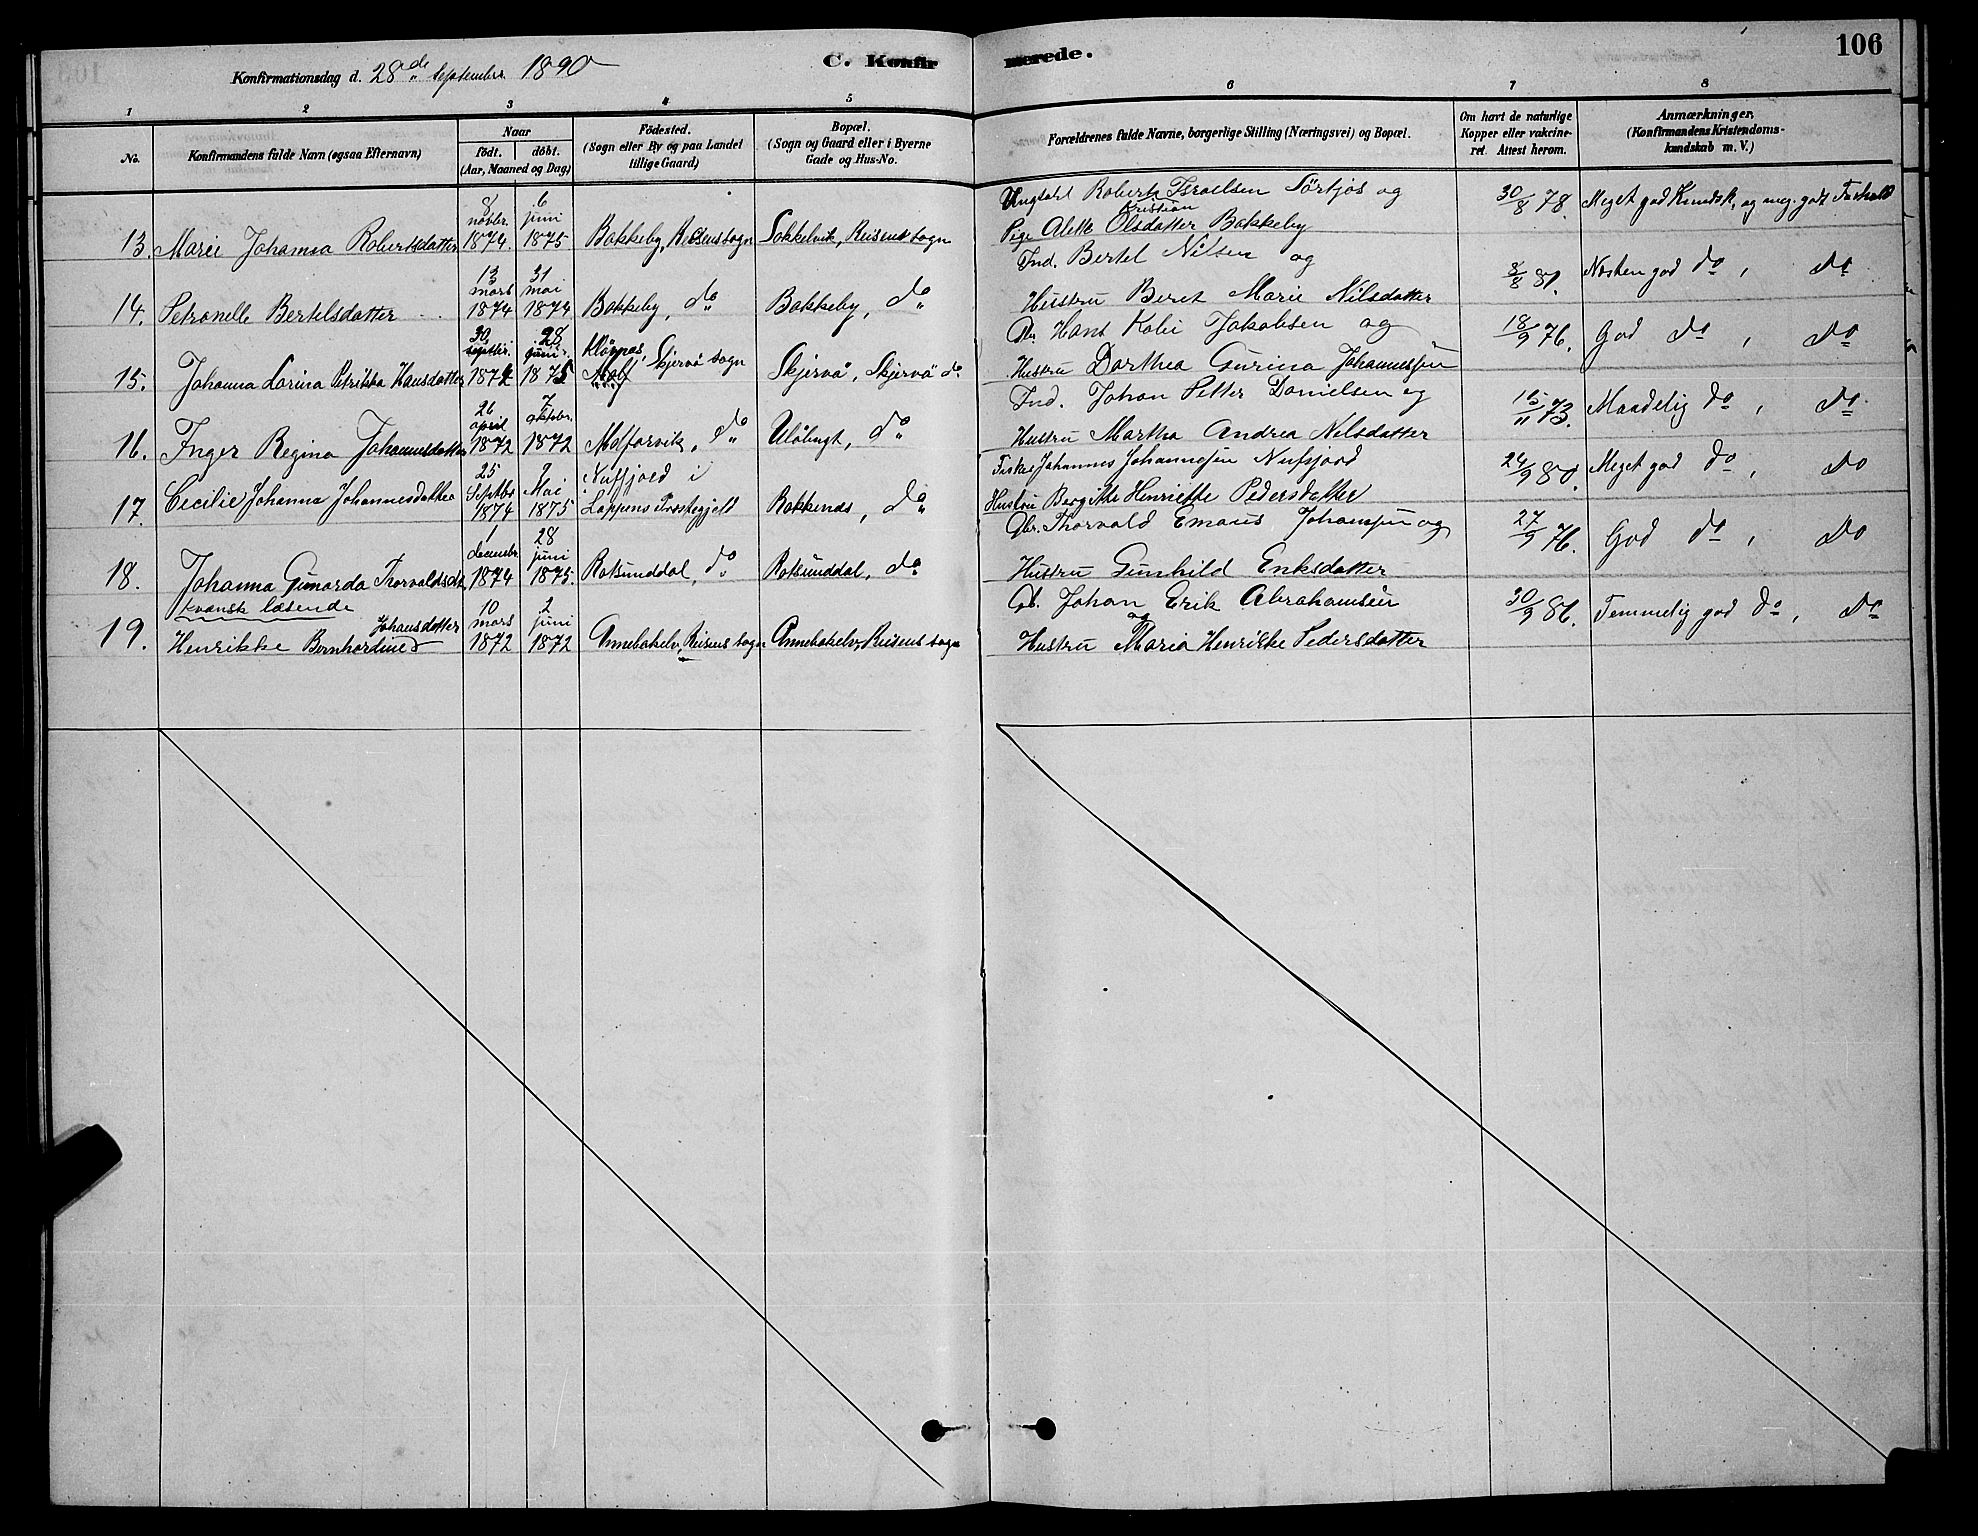 Konfirmationsdag d. 28de September 1890
C. Konfirmerede.
106
1 2 3 4 5 6 7 8
No.
Konfirmandens fulde Navn (ogsaa Efternavn)
Naar
födt. döbt.
(Aar, Maaned og Dag)
Födested.
(Sogn eller By og paa Landet
tillige Gaard)
Bopæl.
(Sogn og Gaard eller i Byerne
Gade og Hus-No.
Forældrenes fulde Navne, borgerlige Stilling (Næringsvei) og Bopæl.
Om havt de naturlige
Kopper eller vakcine-
ret. Attest herom.
Anmærkninger,
(Konfirmandens Kristendoms-
kundskab m. V.)
13. Marei Johanna Robertsdatter
8 novbr. 1874. 6 juni 1875
Bakkeby, Reisens sogn Sokkelvik, Reisens sogn
Ungkarl Robert Kristian Israelsen Sörkjos og
Pige Alette Olsdatter Bakkeby
30/8 78. Meget god Kundsk, og meg. godt Forhold
14. Petronelle Bertelsdatter
13 mars 1874 31 mai 1874
Bakkeby, do Bakkeby, do
Ind. Bertel Nilsen og
Hustru Beret Marie Nilsdatter
8/8 81. Næsten god do, do
15. Johanna Lorina Petrikka Hansdatter
30 septbr. 1874 28 juni 1875
Klövnes, Skjervö sogn
Skjervö, Skjervö do
Hans Kolei Jakobsen og
Hustru Dorthea Gurina Johannesen
18/9 76. God do, do
16. Inger Regina Johannesdatter
26 april 1872 7 oktobr. 1872
Molforvik, do Ulöbugt, do
Ind. Johan Petter Danielsen og
Hustru Martha Andrea Nilsdatter
15/11 73. Maadelig do, do
17. Cecilie Johanna Johannesdatter
25 Septbr 1874 9 Mai 1875
Nuffjord i
Loppens Præstegjeld
Bakkenæs, do
Fisker Johannes Johannesen Nufsjord
Hustru Bergitte Henriette Pedersdatter
24/9 80. Meget god do, do
18. Johanna Gunarda Thorvaldsdt
1 decembr. 1874 28 juni 1875.
Rotsunddal, do Rotsunddal, do
Gbr. Thorvald Emaus Johansen og
Hustru Gunhild Eriksdatter
27/9 76. God do, do
Kvænsk læsende
19. Henrikke Bernhardine Johansdatter
10 mars 1872 2 juni 1872
Annebakelv, Reisens sogn Annebakelv, Reisens sogn
Gb. Johan Erik Abrahamsen
og
Hustru Maria Henrikke Pedersdatter
30/9 86. Temmelig god do, do